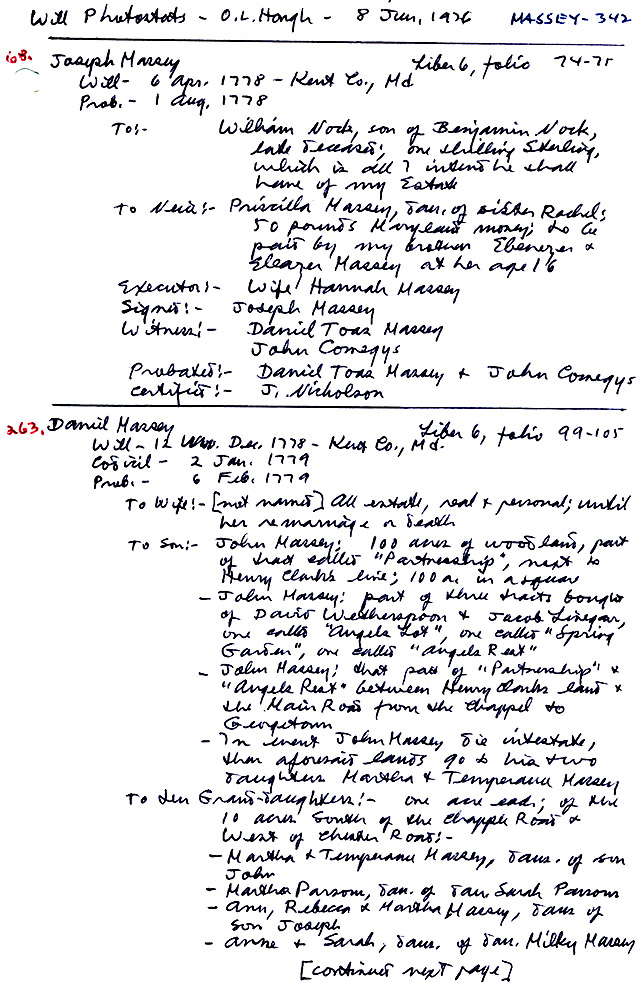 Will Photostats - O.L. Hough - 8 Jun, 1976 MASSEY-342
108. Joseph Massey Liber 6, folio 74-75
Will - 6 Apr. 1778 - Kent Co., Md
Prob. - 1 Aug, 1778
To:- William Nock, son of Benjamin Nock,
late deceased; one shilling Sterling,
which is all I intend he shall
have of my Estate
To Neice:- Priscilla Massey, dau. of sister Rachel;
50 pounds Maryland money; to be
paid by my brothers Ebenezer &
Eleazer Massey at her age 16
Executor:- Wife Hannah Massey
Signed:- Joseph Massey
Witness:- Daniel Toas Massey
John Comegys
Probated:- Daniel Toas Massey & John Comegys
Certified:- J. Nicholson
263. Daniel Massey Liber 6, folio 99-105
Will - 12 Dec. 1778 - Kent Co., Md.
Codicil - 2 Jan. 1779
Prob. - 6 Feb. 1779
To Wife:- [not named] All estate, real & personal; until
her remarriage or death
To Son:- John Massey; 100 acres of woodland, part
of tract called "Partnership", next to
Henry Clark's line; 100 ac in a square
- John Massey; part of three tracts bought
of David Wetherspoon & Jacob Linegar,
one called "Angels Lot", one called "Spring
Garden", one called "Angels Rest"
- John Massey; that part of "Partnership" &
"Angels Rest" between Henry Clarks land &
the Main Road from the Chappel to
Georgetown
- In event John Massey die intestate,
then aforesaid lands go to his two
daughters Martha & Temperance Massey
To ten Grand-daughters:- one acre each; of the
10 acres South of the Chapple Road &
West of Chester Road:-
- Martha & Temperance Massey, daus. of son
John
- Martha Parsons, dau. of dau. Sarah Parsons
- Ann, Rebecca & Martha Massey, daus of
son Joseph
- Anne & Sarah, daus. of dau. Milky Massey
[continued next page]